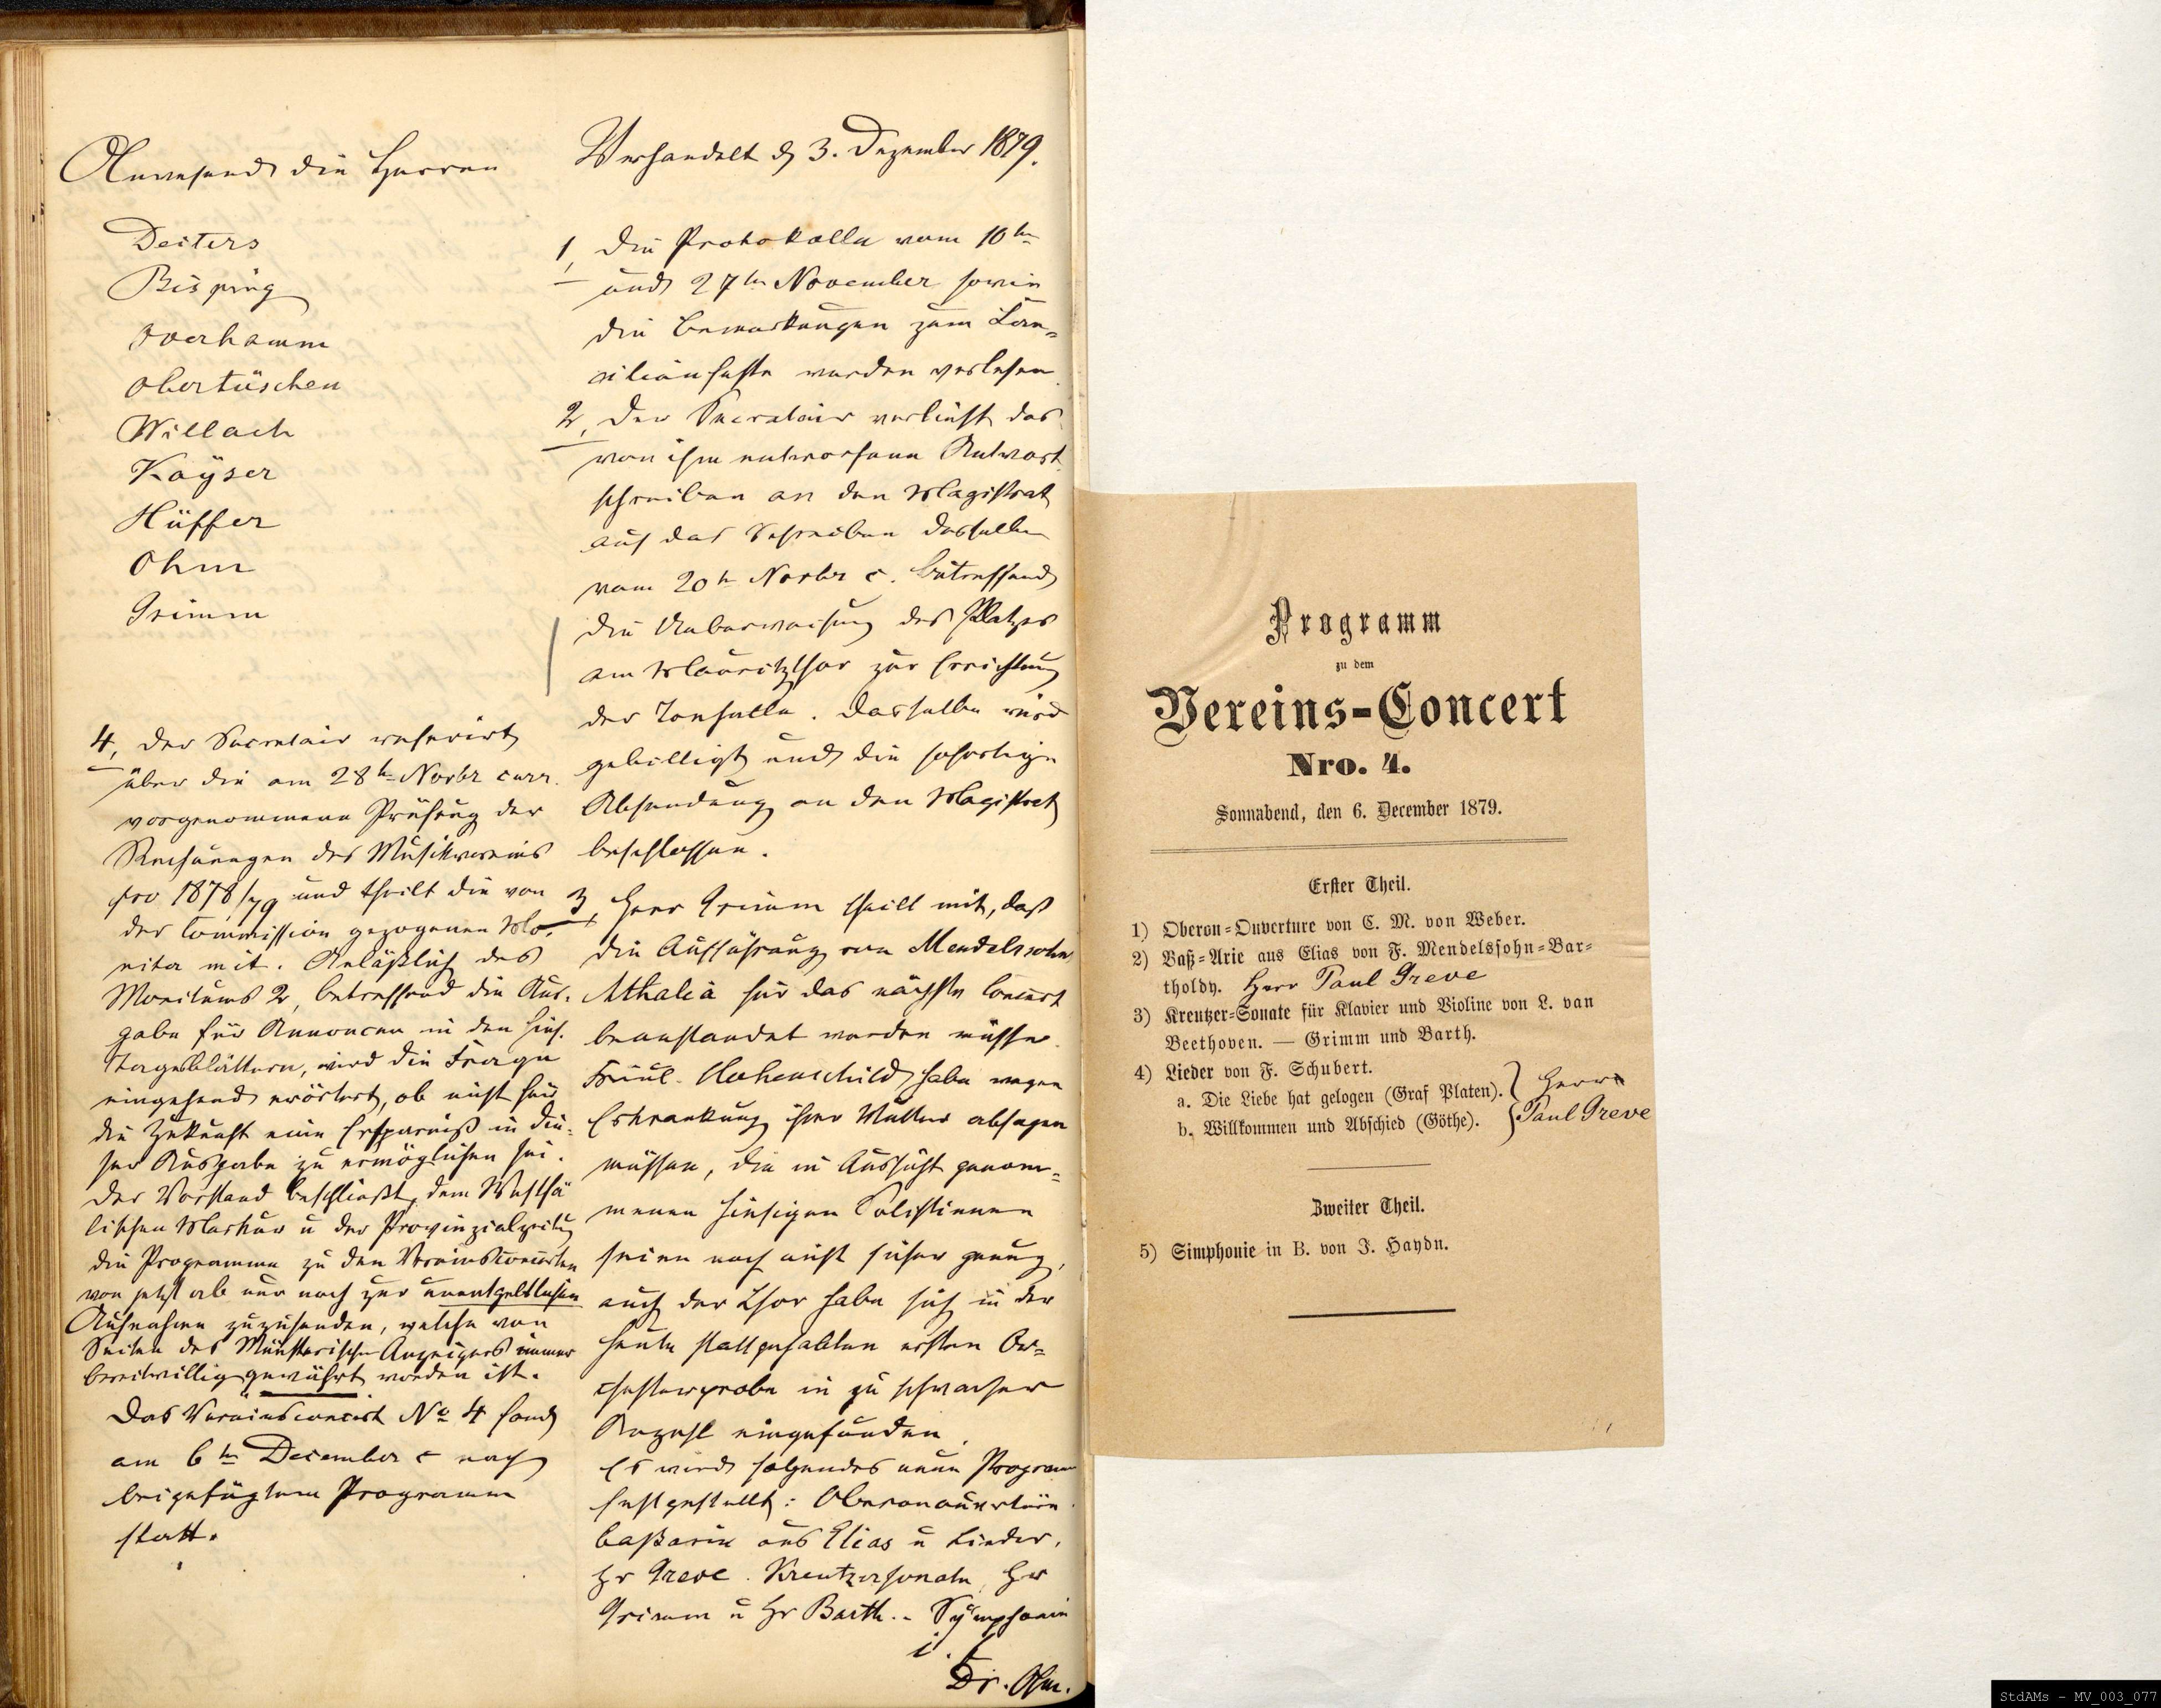 Anwesend die Herren
Deiters
Bisping
Overhamm
Obertüschen
Willach
Kaÿser
Hüffer
Ohm
Grimm
4, Der Secretair referirt
über die am 28tn Novbr curr.
vorgenommene Prüfung der
Rechnungen des Musikvereins
pro 1878/79 und theilt die von
der Commission gezogenen Mo-
nita mit. Anläßlich des
Monitums 2, betreffend die Aus-
gabe für Annoncen in den hies.
Tagesblättern, wird die Frage
eingehend erörtert, ob nicht für
die Zukunft eine Ersparniß in die-
ser Ausgabe zu ermöglichen sei.
Der Vorstand beschließt, dem Westfä
lischen Merkur u der Provinzialzeitg
die Programme zu den Vereinsconcerten
von jetzt ab nur noch zur unentgeltlichen
Aufnahme zuzusenden, welche von
Seiten des Münsterischen Anzeigers immer
bereitwillig gewährt worden ist.
Das Vereinsconcert No 4 fand
am 6tn December c nach
beigefügtem Programm
statt.
Verhandelt d 3. Dezember 1879.
1, Die Protokolle vom 10tn
und 27tn November sowie
die Bemerkungen zum Cäci-
cilienfeste werden verlesen
2, Der Secretair verliest das
von ihm entworfene Antwort
schreiben an den Magistrat
auf das Schreiben desselben
vom 20tn Novbr c. betreffend
die Ueberweisung des Platzes
am Mauritzthor zur Errichtung
der Tonhalle. Dasselbe wird
gebilligt und die sofortige
Absendung an den Magistrat
beschlossen.
3, Herr Grimm theilt mit, daß
die Aufführung von Mendelssohns
Athalia für das nächste Concert
beanstandet werden müsse.
Fräul. Hohenschild habe wegen
Erkrankung ihrer Mutter absagen
müssen, die in Aussicht genom-
menen hiesigen Solistinnen
seien noch nicht sicher genug,
auch der Chor habe sich in der
heute stattgehabten ersten Or-
chesterprobe in zu schwacher
Anzahl eingefunden.
Es wird folgendes neue Programm
festgestellt: Oberonouvertüre
Baßarie aus Elias u Lieder,
Hr Greve. Kreutzersonate, Herr
Grimm u Hr Barth.- Sÿmphonie
Dr. Ohm.
Programm
zu dem
Vereins-Concert
Nro. 4.
Sonnabend, den 6. December 1879.
Erster Theil.
1) Oberon-Ouverture von C. M. von Weber.
2) Baß-Arie aus Elias von F. Mendelssohn-Bar-
tholdy. Herr Paul Greve
3) Kreutzer-Sonate für Klavier und Violine von L. van
Beethoven. — Grimm und Barth.
4) Lieder von F. Schubert.
a. Die Liebe hat gelogen (Graf Platen). } Herr
b. Willkommen und Abschied (Göthe). } Paul Greve
Zweiter Theil.
5) Simphonie in B. von J. Haydn.
StdAMs - MV_003_077